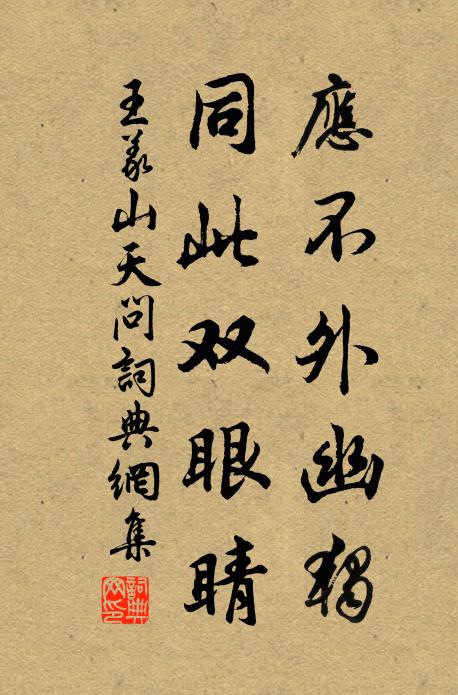 應不外幽獨
同此双眼睛
王義山天問詞典網集
詞典网印